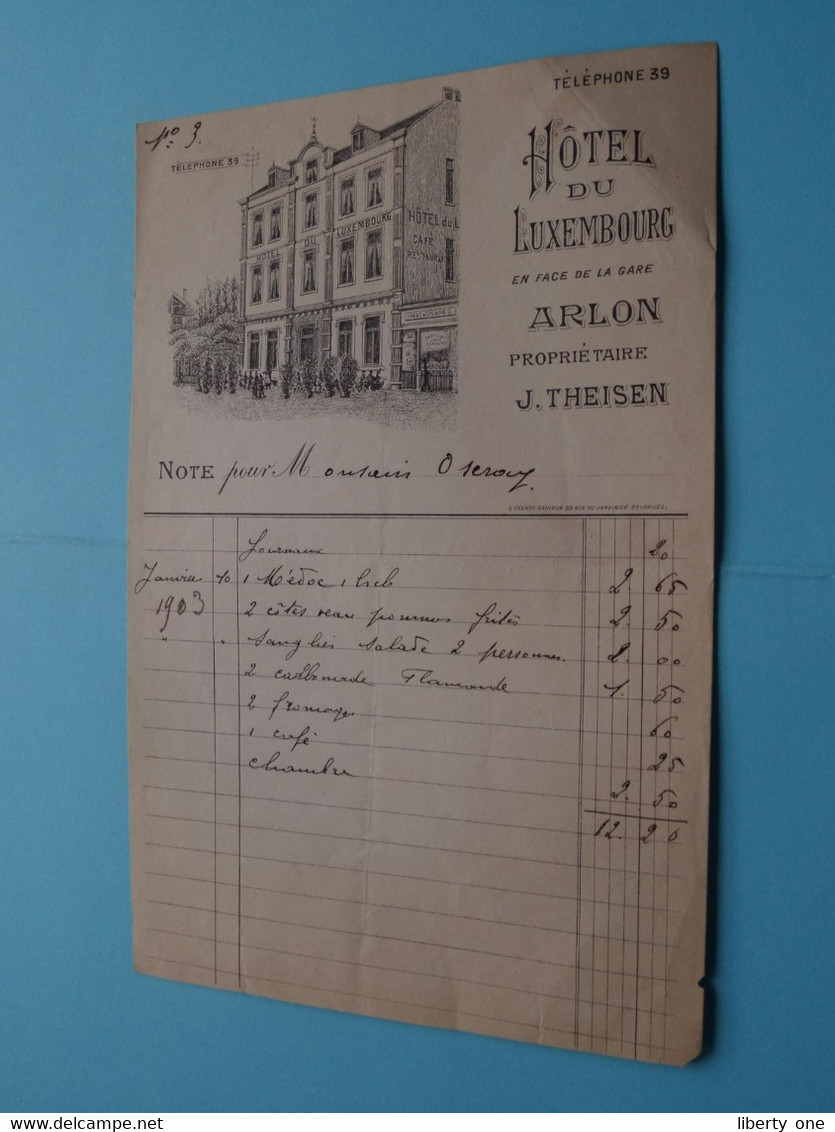 TÉLÉPHONE 39
No 3.
TÉLÉPHONE 39
HÔTEL
DU
LUXEMBOURG
EN FACE DE LA GARE
ARLON
PROPRIÉTAIRE
J. THEISEN
HOTEL DU LUXEMBOURG
HÔTEL du L
CAFÉ
RESTAURANT
NOTE pour Monsieur
Journaux 20
Janvier 10 1 Médoc 1 2. 65
1903 2 côtes veau pommes frites 2. 50
" " Sanglier salade 2 personnes. 2. 00
2 carbonade Flamande 1. 50
2 fromage 60
1 café 25
Chambre 2. 50
12. 20
www.delcampe.net
liberty one